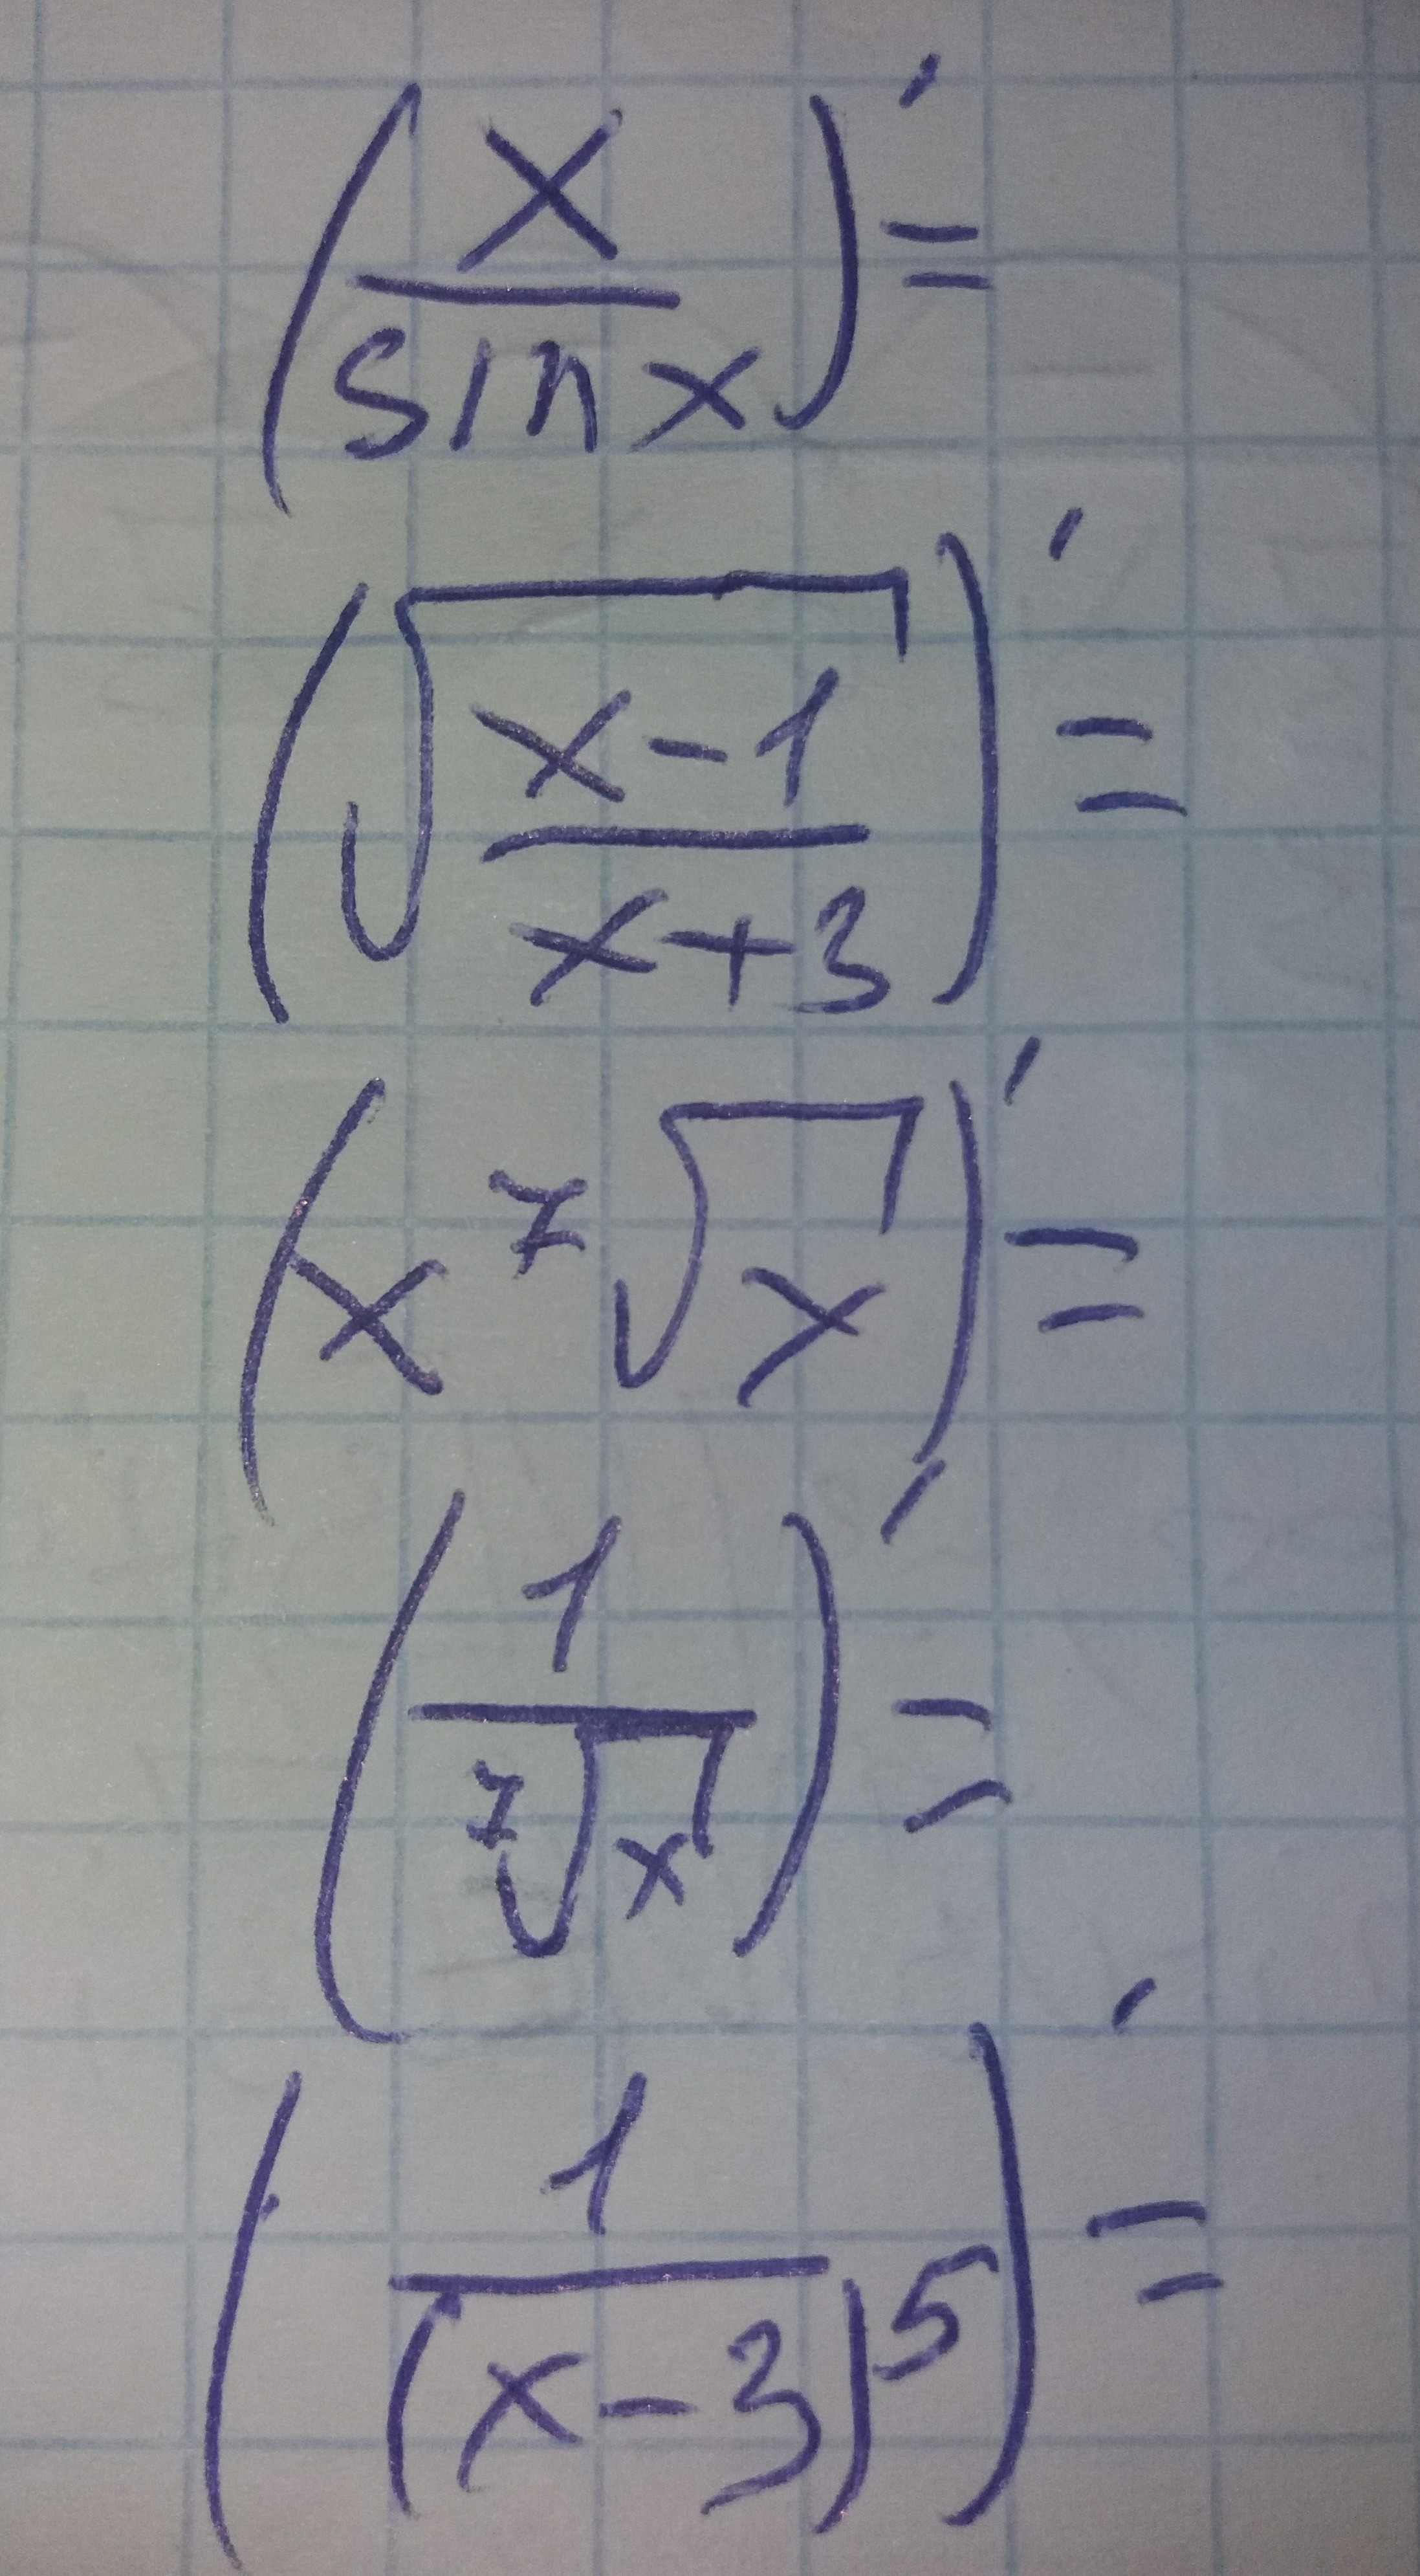 (x/sin x)' =
(√((x-1)/(x+3)))' =
(x ⁷√x)' =
(1/⁷√x)' =
(1/(x-3)⁵)' =